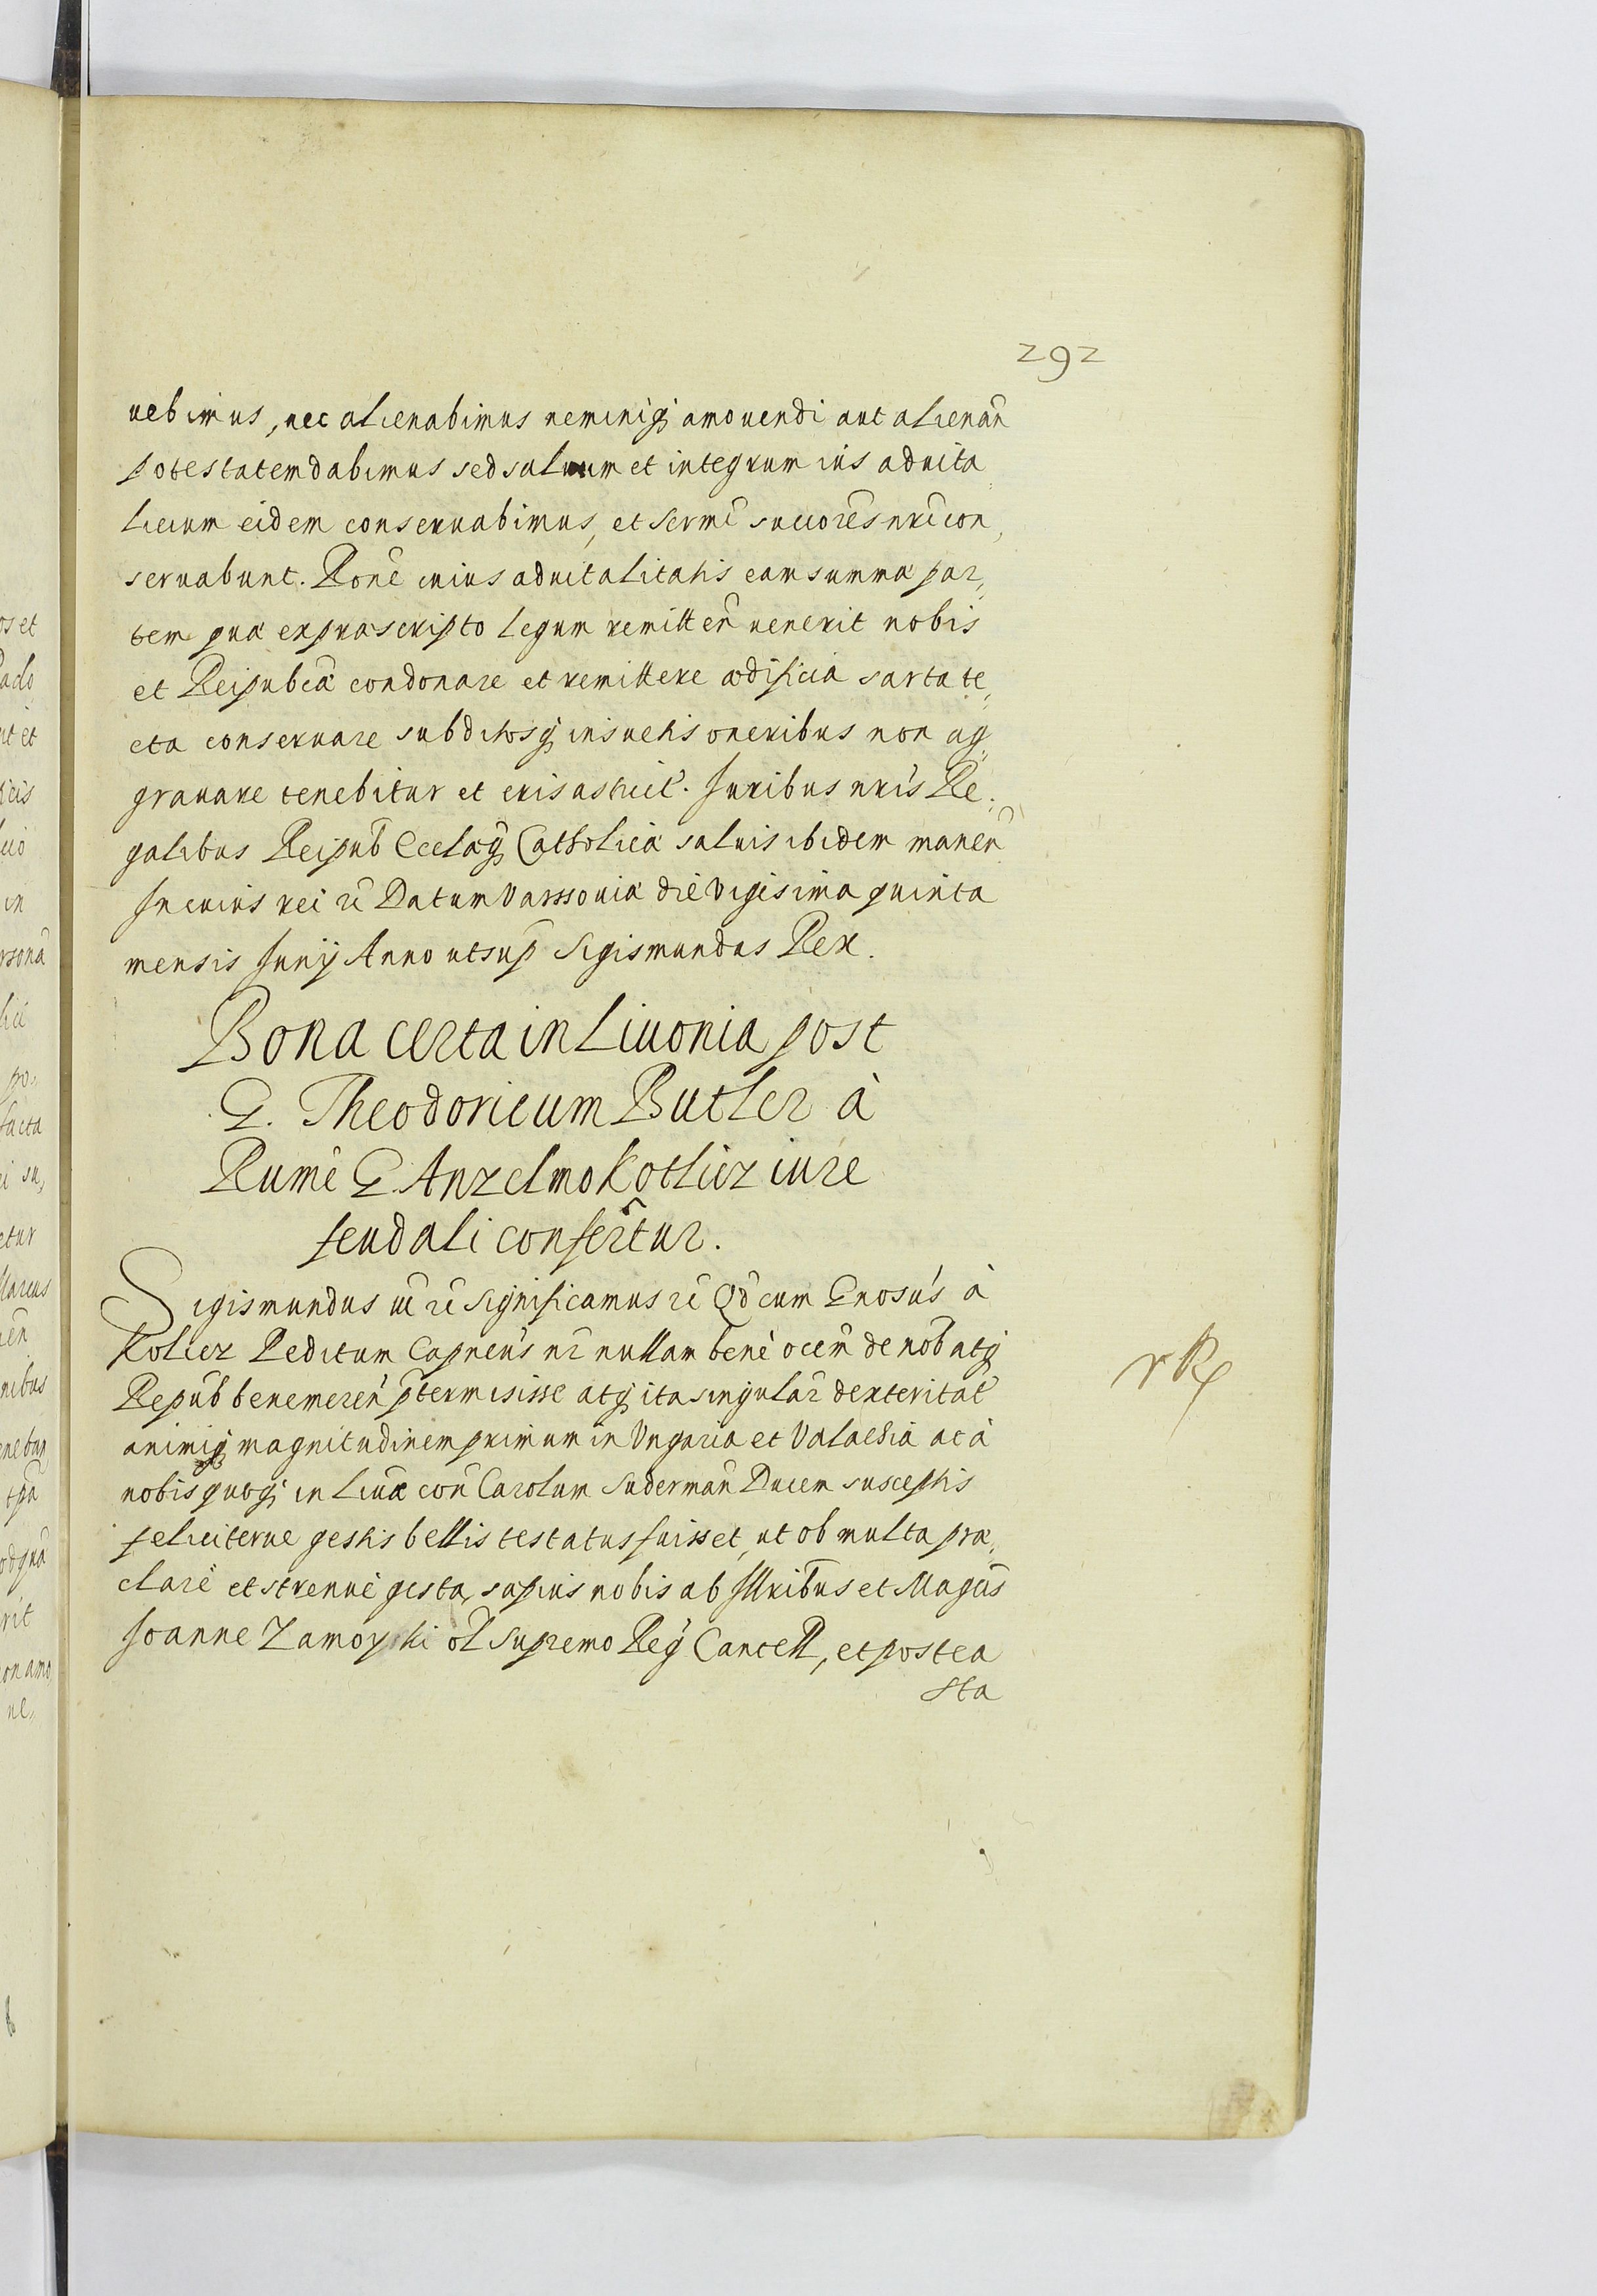 292
uebimus, nec alienabimus neminiq; amouendi aut alienan̄
potestatem dabimus sed saluum et integrum ius aduita,
licium eidem conseruabimus, et Sermi succores nr̄i con,
seruabunt. Rone cuius aduitalitatis eam summæ par,
tem quæ ex præscripto legum remitten̄ uenerit nobis
et Reipubcæ condonare et remittere ædificia sarta te,
cta conseruare subditosq; insuetis oneribus non ag,
grauare tenebitur et erit astrict. Juribus nr̄is Re,
galibus Reipub Ecclæq; Catholicæ saluis ibidem manen̄
In cuius rei rc̄ Datum Varssouiæ die vigesima quinta
mensis Junij Anno ut sup Sigismundus Rex.
Bona certa in Liuonia post
G. Theodoricum Butler à
Rume G. Anzelmo Kotlicz iure
feudali confer̄tur.
Sigismundus iii rc̄ Significamus rc̄ Qd cum Gnosus à
Kolicz Peditum Capneus nr nullam bene ōcem̄ de nob atq;
Repub bene meren̄ p̄termisisse atq; ita singular dexteritat
animiq; magnitudinem primum in Vngaria et Valachia ac à
nobis quoq; in Liuæ con̄ Carolum Suderman̄ Ducem susceptis
feliciterue gestis bellis testatus fuisset, ut ob multa præ,
clarè et strenuè gesta, sæpius nobis ab Illribus et Magcis
Joanne Zamoyski ol Supremo Reg Cancell, et postea
sta